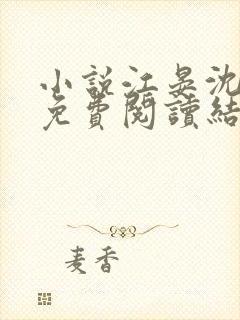 小說江晏沈
免費閱讀結
麦香